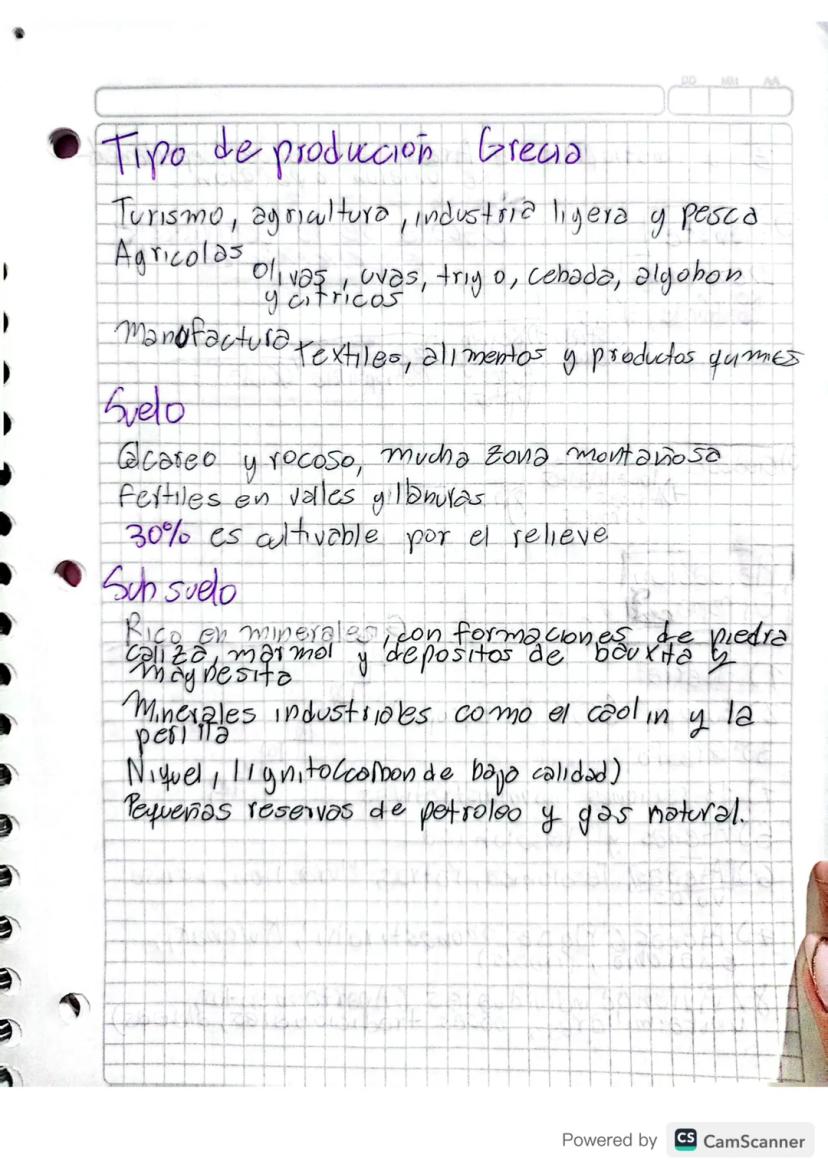 DD MM AA
Tipo de producción Grecia
Turismo, agricultura, industria ligera y pesca
Agricolas
Olivas, uvas, trigo, cebada, algobon
y citricos
Manofactura
Textiles, alimentos y productos
Suelo
y rocoso, mucha zona montañosa
Fertiles en valles y llanuras
30% es cultivable por el relieve
Sub suelo
Rico en minerales, con formaciones de piedra
caliza, marmol y depositos de bauxita y
magnesita
Minerales industriales como el caolin y la
perlita
Niquel, lignito (carbon de bajo calidad)
Pequeñas reservas de petroleo y gas natural.
Powered by CS CamScanner